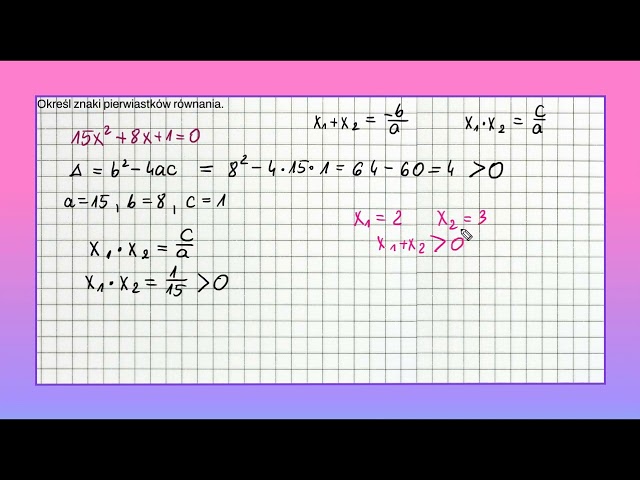 Określ znaki pierwiastków równania.
x₁+x₂ = -b/a    x₁·x₂ = c/a
15x²+8x+1=0
Δ = b²-4ac = 8²-4·15·1 = 64-60 = 4 >0
a=15, b=8, c=1
x₁=2    x₂=3
x₁+x₂ >0
x₁·x₂ = c/a
x₁·x₂ = 1/15 >0